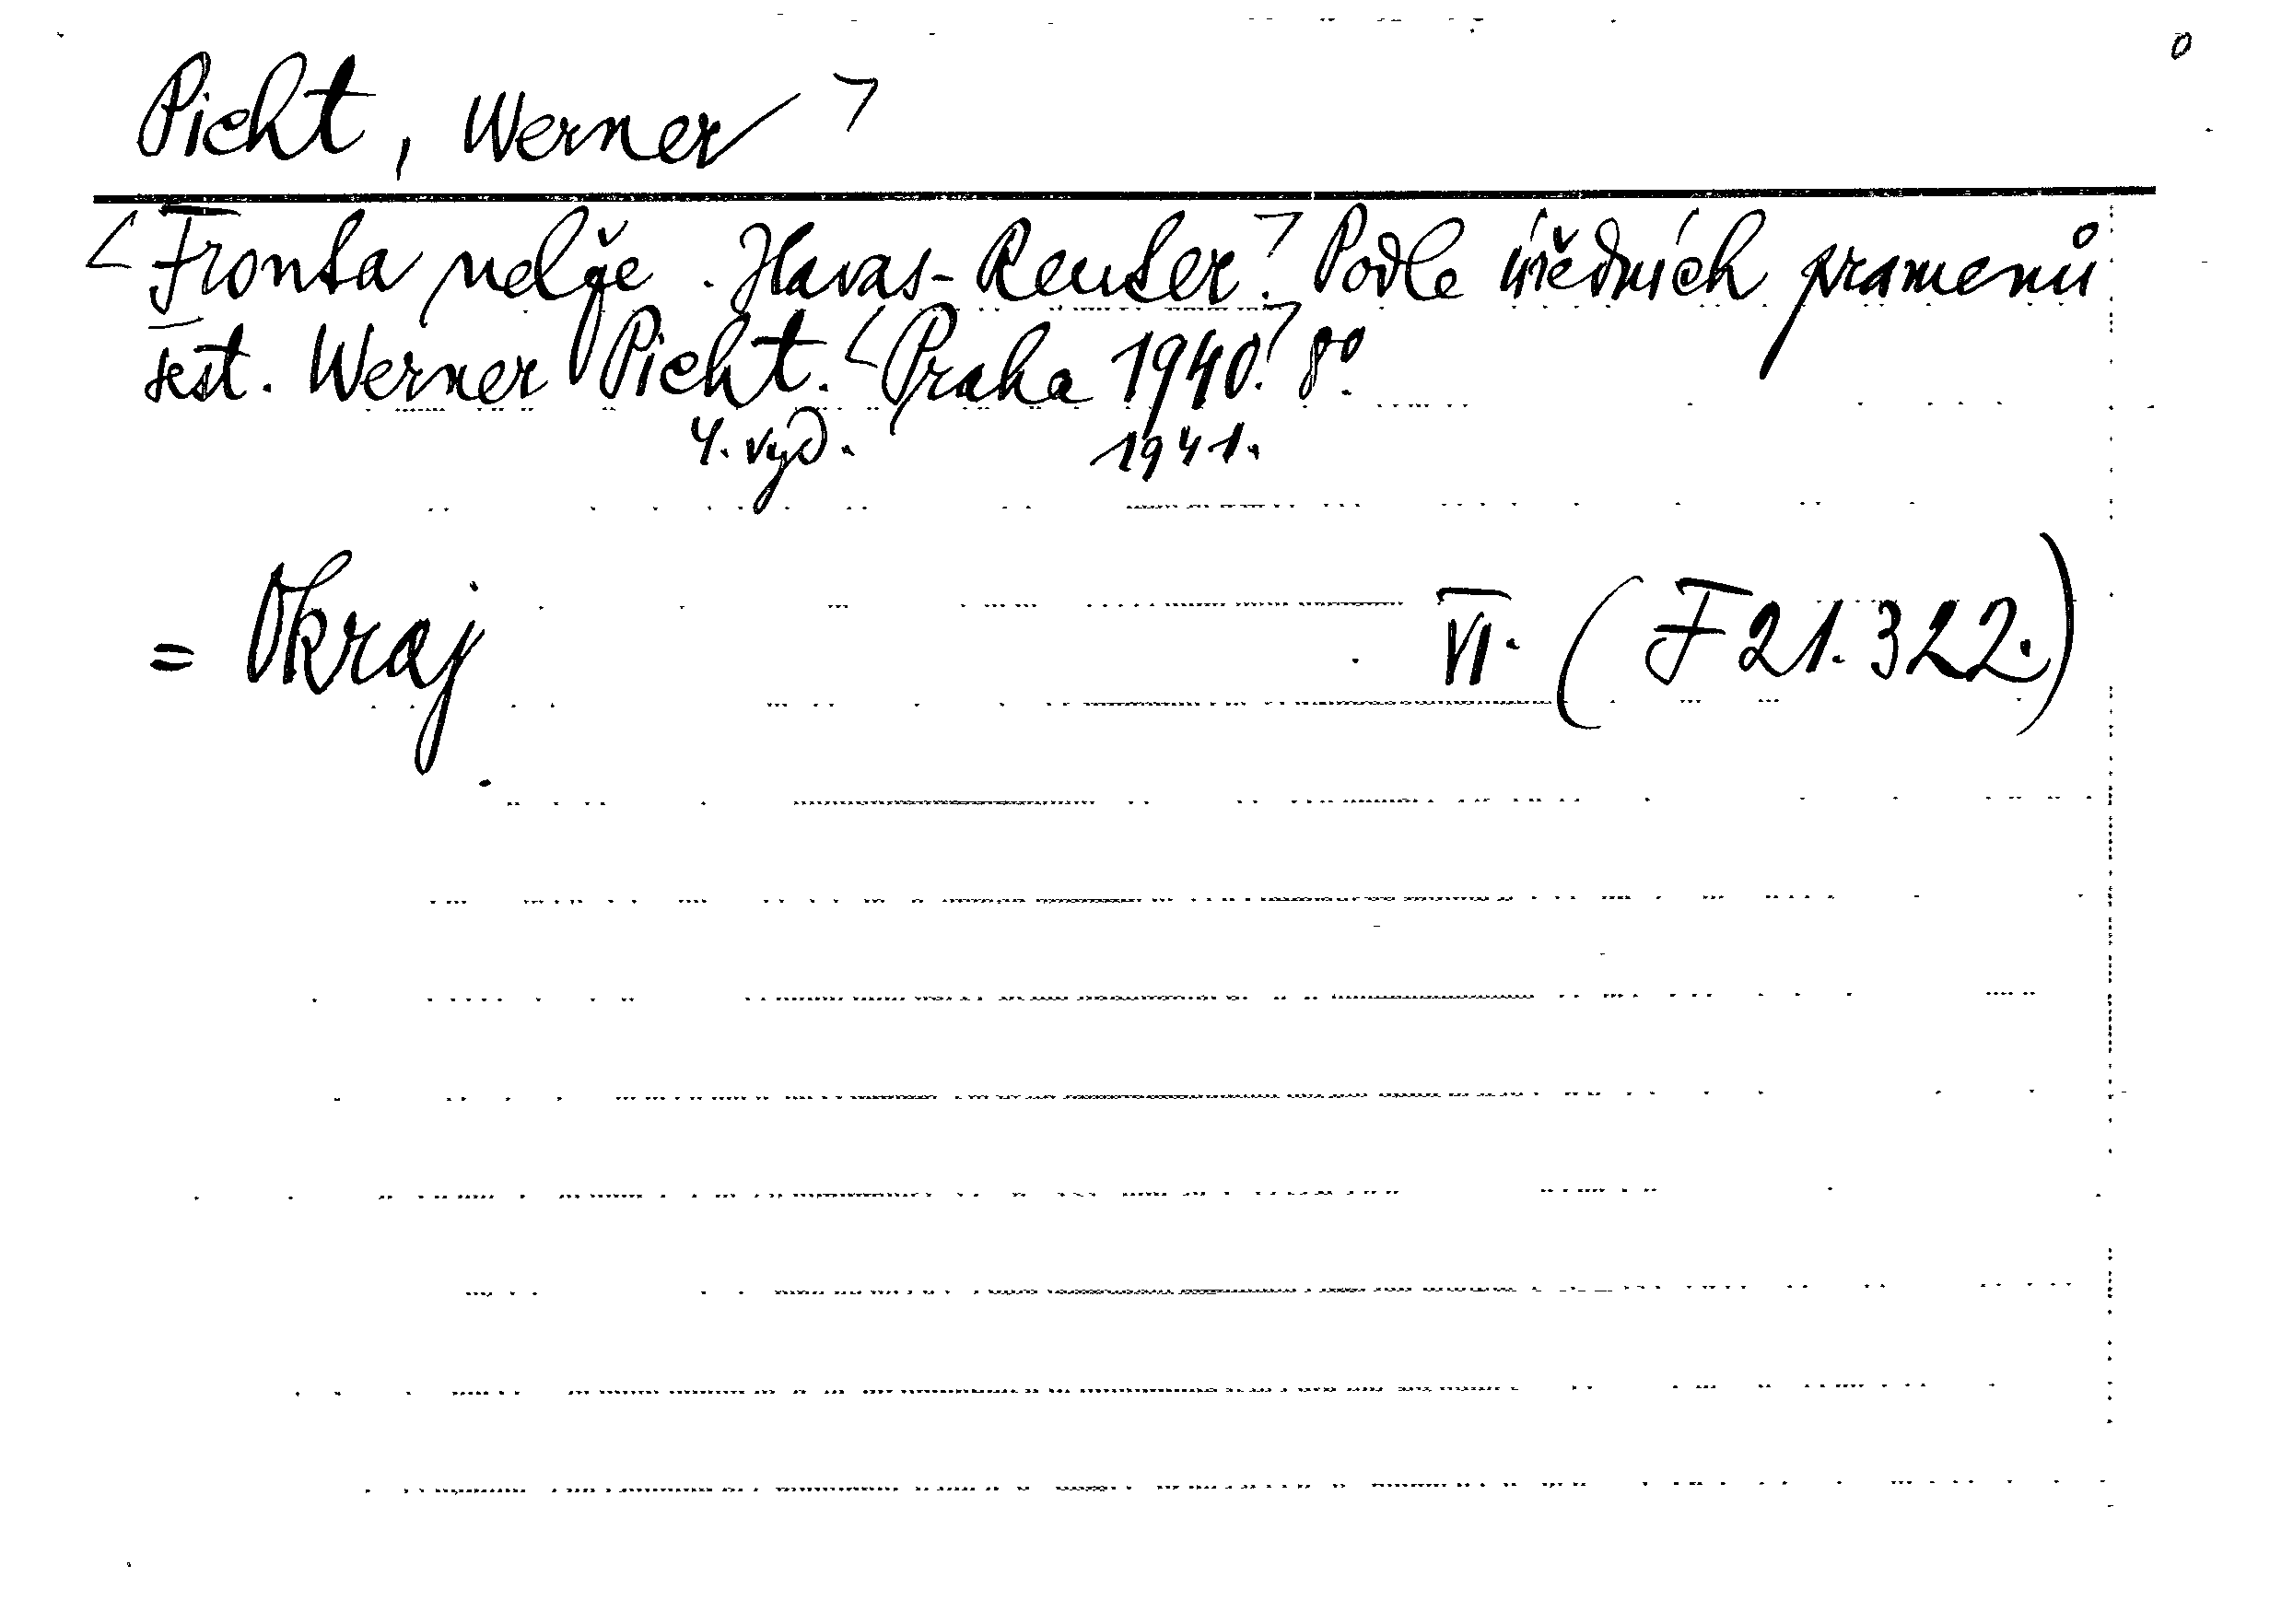 Picht, Werner
Fronta nelže. Havas-Reuter. Podle úředních pramenů
sest. Werner Picht. Praha 1940. 8°.
4. vyd. 1941.
= Okraj VI. (F 21.322.)